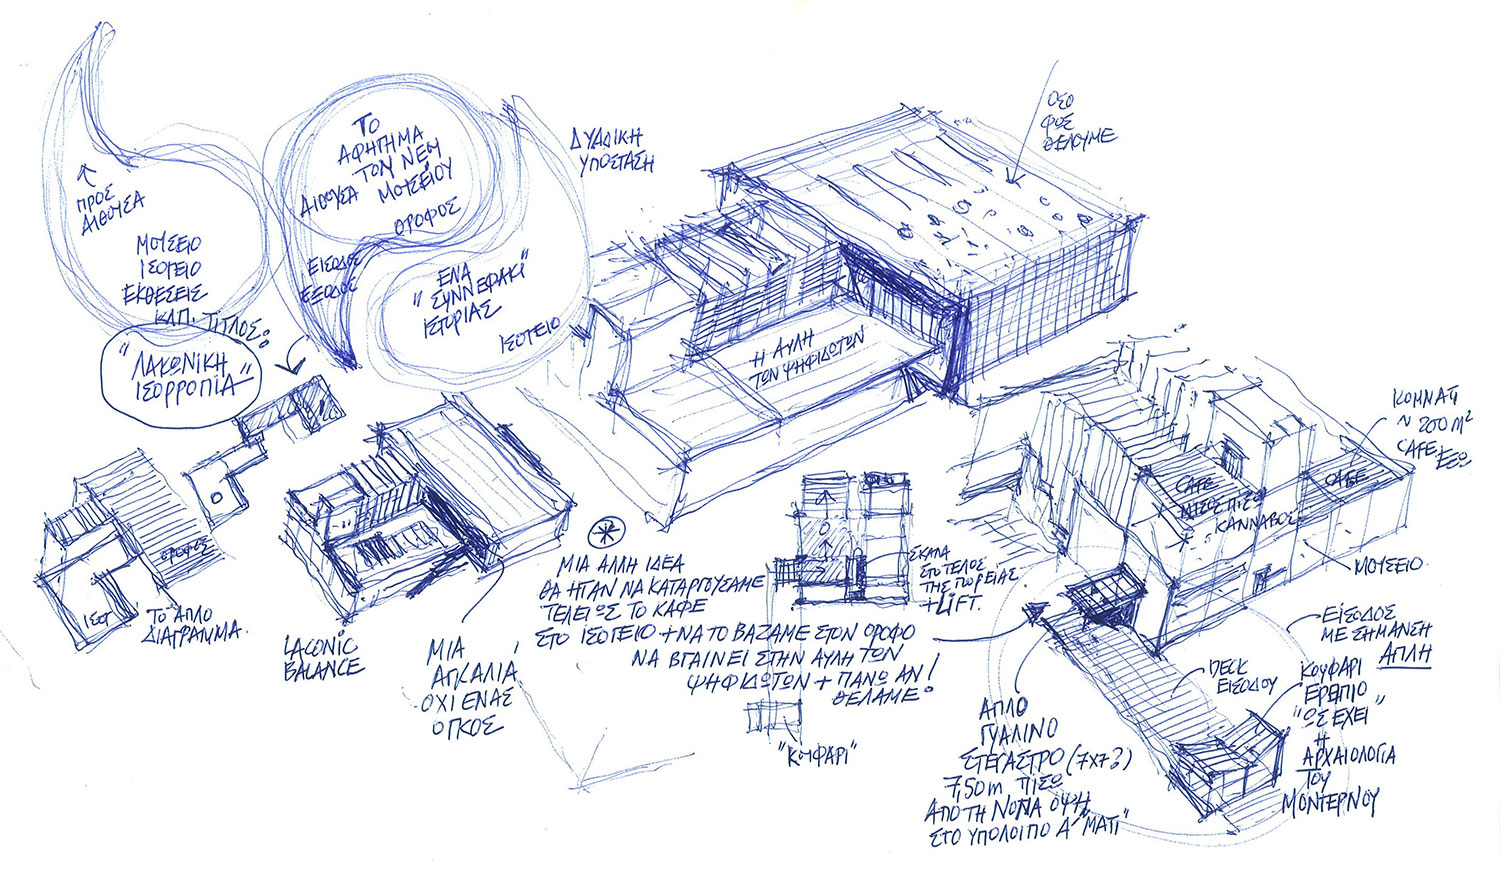 ΠΡΟΣ
ΑΙΘΟΥΣΑ
ΜΟΥΣΕΙΟ
ΙΣΟΓΕΙΟ
ΕΚΘΕΣΕΙΣ
ΚΛΠ.
ΤΙΤΛΟΣ:
"ΛΑΚΩΝΙΚΗ
ΙΣΟΡΡΟΠΙΑ"
ΤΟ
ΑΦΗΓΗΜΑ
ΤΟΥ ΝΕΟΥ
ΜΟΥΣΕΙΟΥ
ΑΙΘΟΥΣΑ
ΟΡΟΦΟΣ
ΕΙΣΟΔΟΣ
ΕΞΟΔΟΣ
ΕΝΑ
"ΣΥΝΝΕΦΑΚΙ"
ΙΣΤΟΡΙΑΣ
ΙΣΟΓΕΙΟ
ΔΥΑΔΙΚΗ
ΥΠΟΣΤΑΣΗ
ΟΣΟ
ΦΩΣ
ΘΕΛΟΥΜΕ
Η ΑΥΛΗ
ΤΩΝ ΨΗΦΙΔΩΤΩΝ
ΟΡΟΦΟΣ
ΙΣΟΓ
ΤΟ ΑΠΛΟ
ΔΙΑΓΡΑΜΜΑ.
LACONIC
BALANCE
ΜΙΑ
ΑΓΚΑΛΙΑ
ΟΧΙ ΕΝΑΣ
ΟΓΚΟΣ
ΜΙΑ ΑΛΛΗ ΙΔΕΑ
ΘΑ ΗΤΑΝ ΝΑ ΚΑΤΑΡΓΟΥΣΑΜΕ
ΤΕΛΕΙΩΣ ΤΟ ΚΑΦΕ
ΣΤΟ ΙΣΟΓΕΙΟ + ΝΑ ΤΟ ΒΑΖΑΜΕ ΣΤΟΝ ΟΡΟΦΟ
ΝΑ ΒΓΑΙΝΕΙ ΣΤΗΝ ΑΥΛΗ ΤΩΝ
ΨΗΦΙΔΩΤΩΝ + ΠΑΝΩ ΑΝ
ΘΕΛΑΜΕ!
ΣΚΑΛΑ
ΣΤΟ ΤΕΛΟΣ
ΤΗΣ ΠΟΡΕΙΑΣ
+ LIFT.
"ΚΟΥΦΑΡΙ"
ΚΟΜΜΑΤΙ
~ 200 M²
CAFE ΕΞΩ
CAFE
CAFE
ΠΙΣΩ
ΚΑΝΝΑΒΟΣ
ΜΟΥΣΕΙΟ
ΕΙΣΟΔΟΣ
ΜΕ ΣΗΜΑΝΣΗ
ΑΠΛΗ
DECK
ΕΙΣΟΔΟΥ
ΚΟΥΦΑΡΙ
ΕΡΕΙΠΙΟ
"ΩΣ ΕΧΕΙ"
Η
ΑΡΧΑΙΟΛΟΓΙΑ
ΤΟΥ
ΜΟΝΤΕΡΝΟΥ
ΑΠΛΟ
ΓΥΑΛΙΝΟ
ΣΤΕΓΑΣΤΡΟ (7x7?)
7,50m ΠΙΣΩ
ΑΠΟ ΤΗ ΝΟΤΙΑ ΟΨΗ
ΣΤΟ ΥΠΟΛΟΙΠΟ Α' "ΜΑΤΙ"